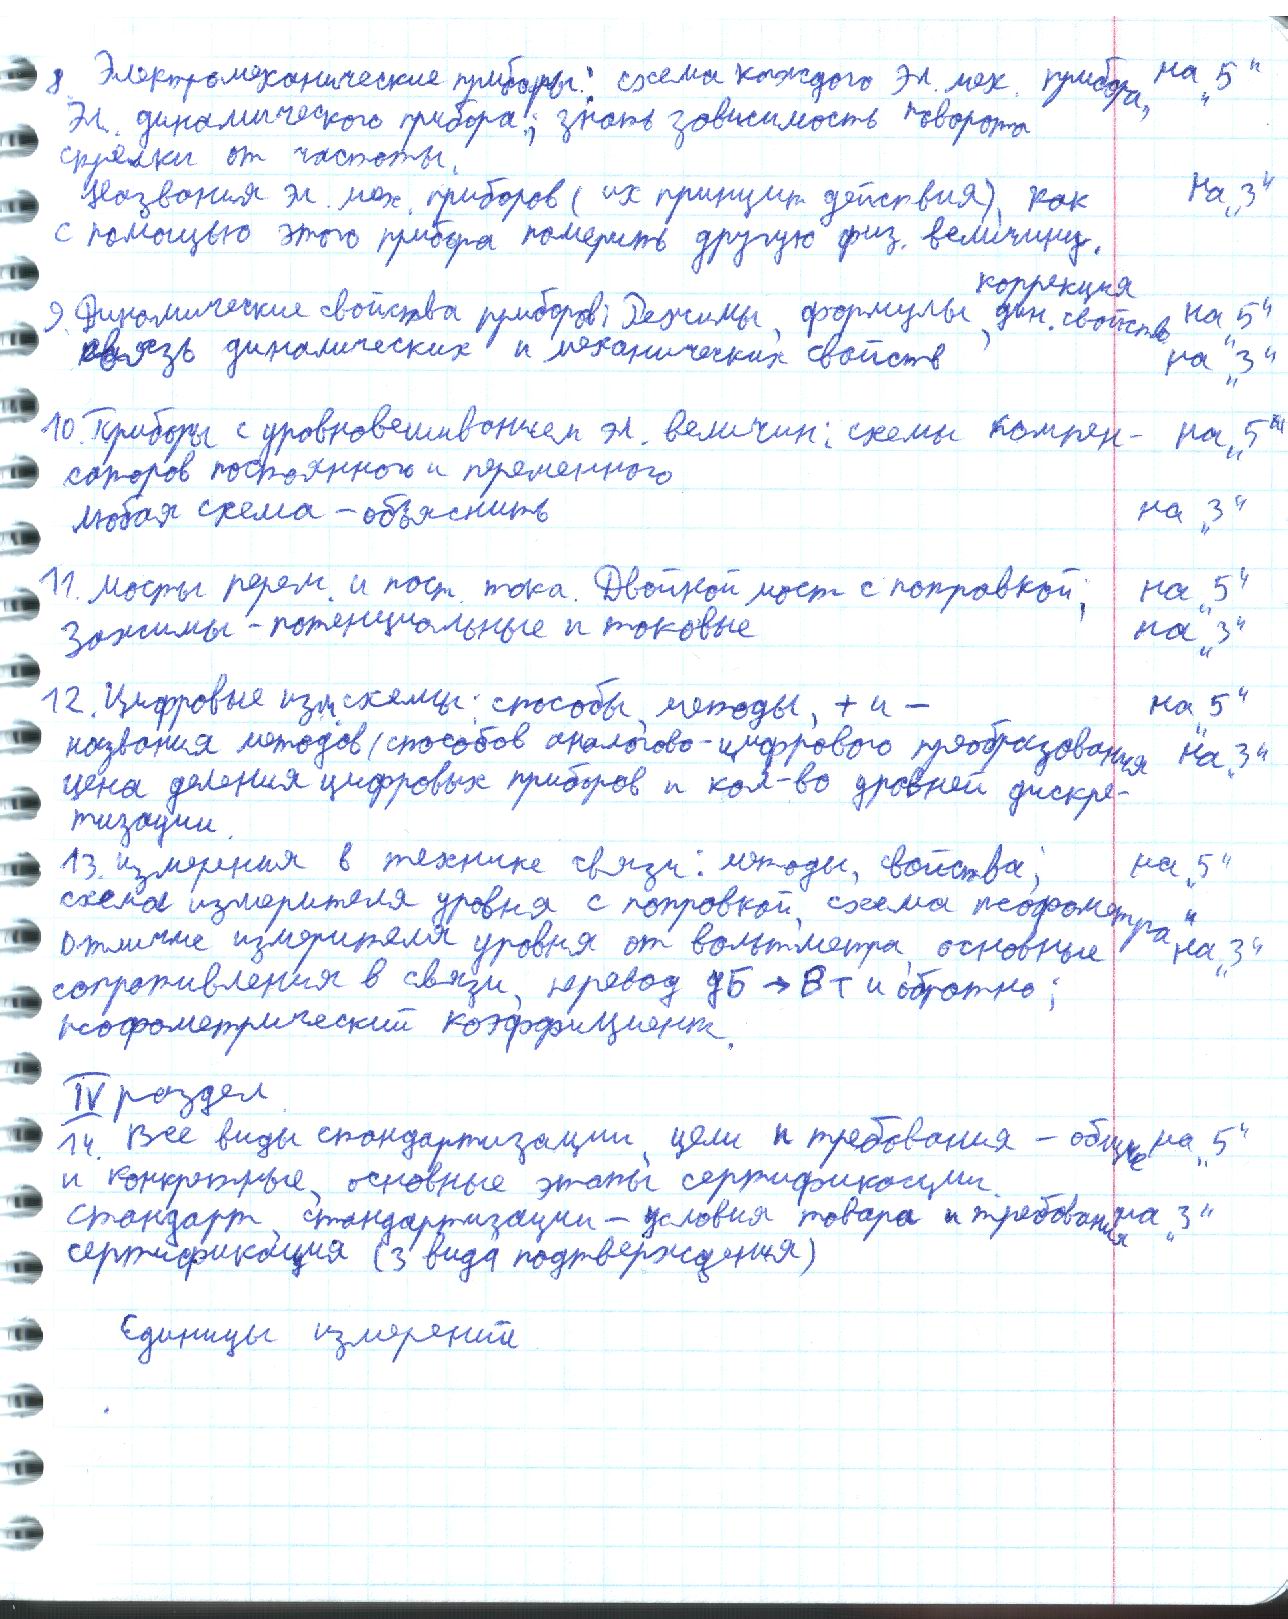 8. Электромеханические приборы: схема каждого эл. мех. прибора, на „5"
Эл. динамического прибора; знать зависимость поворота
стрелки от частоты.
Названия эл. мех. приборов (их принцип действия), как на „3"
с помощью этого прибора померить другую физ. величину.
коррекция
9. Динамические свойства приборов: Режимы, формулы, дин. свойств на „5"
связь динамических и механических свойств на „3"
10. Приборы с уровновешиванием эл. величин: схемы компен- на „5"
саторов постоянного и переменного
любая схема – объяснить на „3"
11. Мосты перем. и пост. тока. Двойной мост с поправкой; на „5"
Зажимы – потенциальные и токовые на „3"
12. Цифровые изм схемы: способы, методы, + и – на „5"
названия методов (способов аналогово-цифрового преобразования на „3"
цена деления цифровых приборов и кол-во уровней дискре-
тизации.
13. измерения в технике связи: методы, свойства; на „5"
схема измерителя уровня с поправкой, схема псофометра
отличие измерителя уровня от вольтметра, основные на „3"
сопротивления в связи, перевод дБ → Вт и обратно;
псофометрический коэффициент.
IV раздел
14. Все виды стандартизации, цели и требования – общие на „5"
и конкретные, основные этапы сертификации.
Стандарт, стандартизации – условия товара и требования на „3"
сертификация (3 вида подтверждения)
Единицы измерений